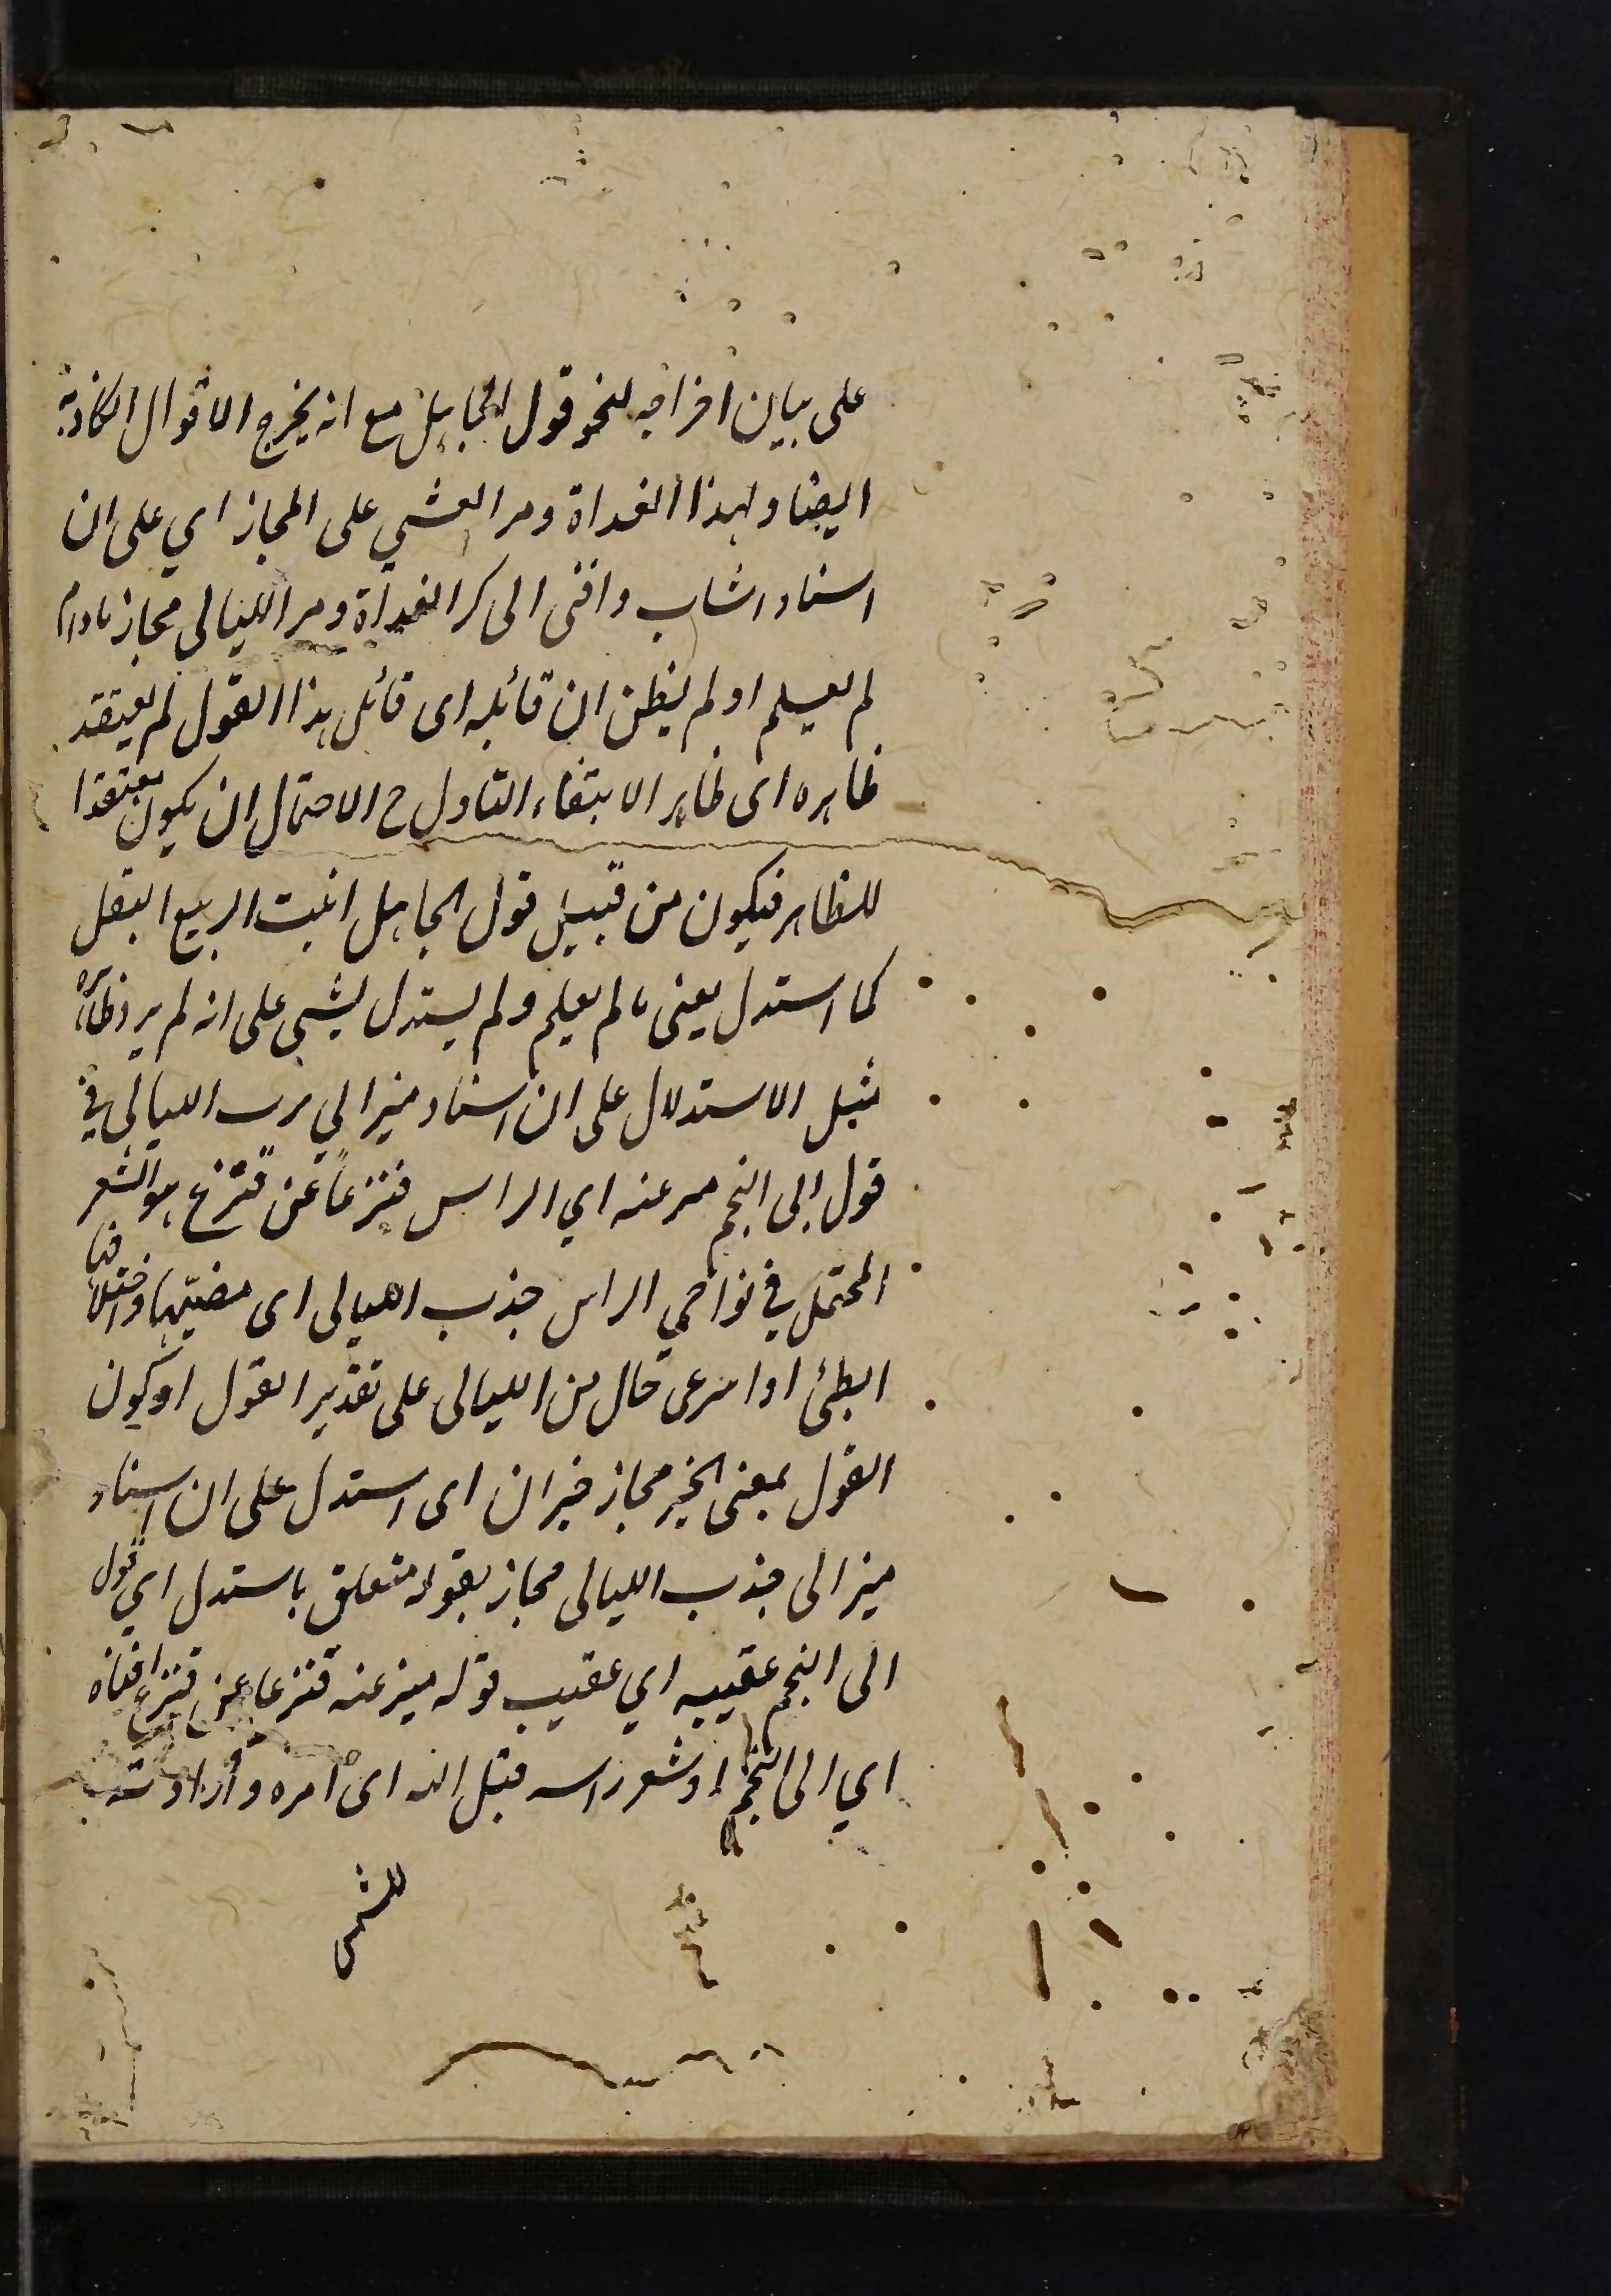 على بيان اخراجه لنحو قول الجاهل مع انه يخرج الاقوال الكاذبة
ايضا ولهذا الغداة ومر العشي على المجاز اي على ان
اسناد اشاب وافنى الى كر الغداة ومر الليالى مجاز مادام
لم يعلم او لم يظن ان قائله اى قائل هذا القول لم يعتقد
ظاهره اى ظاهر الابتفاء التاول ح الاحتمال ان يكون معتقدا
للظاهر فيكون من قبيل قول الجاهل انبت الربيع البقل
كما استدل يعنى ما لم يعلم ولم يستدل بشى على انه لم يرد ظاهره
مثل الاستدلال على ان اسناد ميز الي جرب الليالى في
قول ابى النجم ميز عنه اي الراس قنزعاً عن قنزع هو الشعر
المجتمع في نواحي الراس جذب الليالى اى مضيّها واختلافها
ابطئى او اسرعى حال من الليالى على تقدير القول او كون
القول بمعنى الخبر مجاز خبر ان اى استدل على ان اسناد
ميز الى جذب الليالى مجاز بقوله متعلق باستدل اي قول
ابى النجم عقيبه اي عقيب قوله ميز عنه قنزعا عن قنزع افناه
اي ابى النجم او شعر راسه قيل الله اى امره وارادته
للشمس